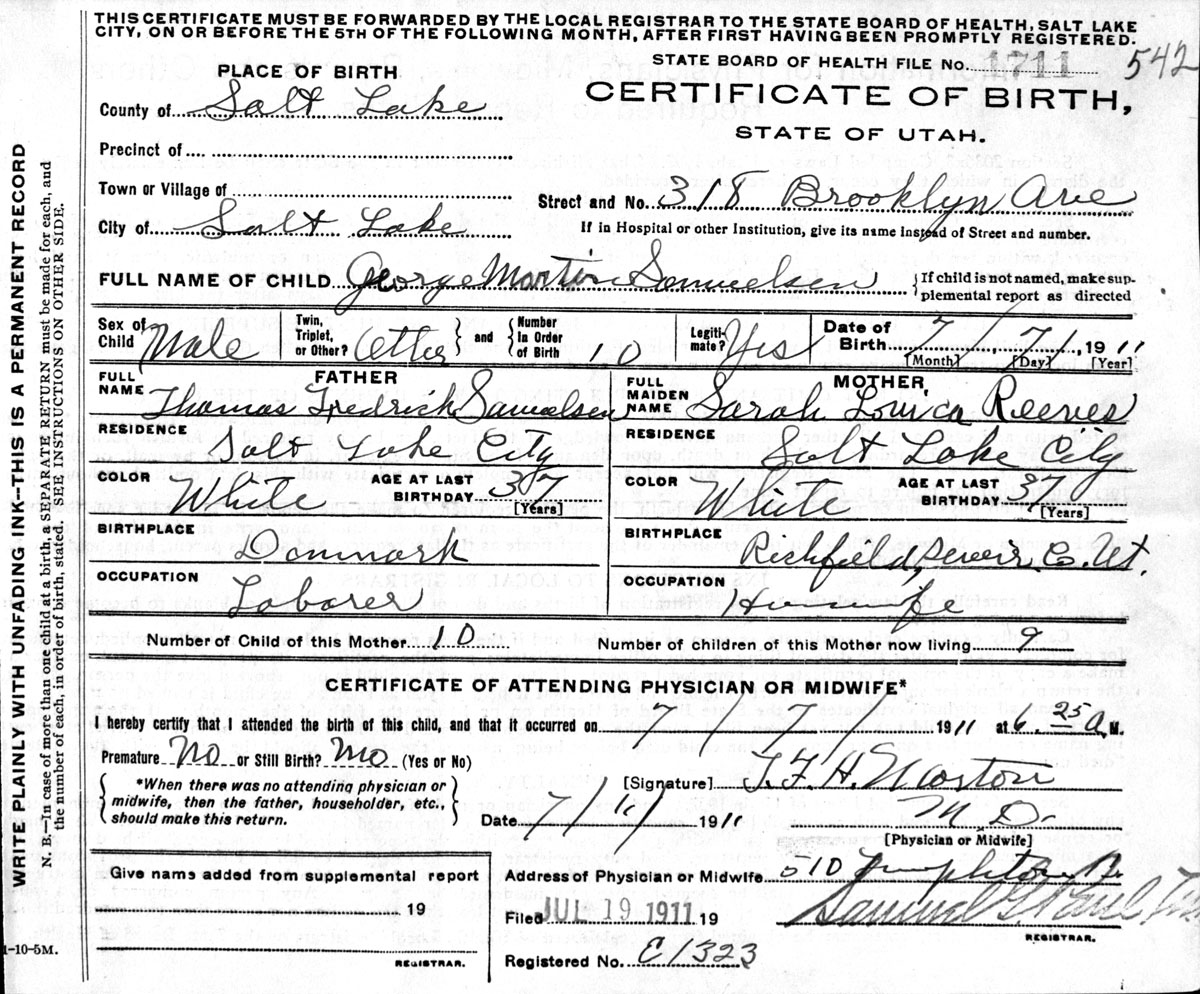 THIS CERTIFICATE MUST BE FORWARDED BY THE LOCAL REGISTRAR TO THE STATE BOARD OF HEALTH, SALT LAKE
CITY, ON OR BEFORE THE 5TH OF THE FOLLOWING MONTH, AFTER FIRST HAVING BEEN PROMPTLY REGISTERED.
STATE BOARD OF HEALTH FILE No. 1711 542
PLACE OF BIRTH
CERTIFICATE OF BIRTH,
STATE OF UTAH.
County of Salt Lake
Precinct of
Town or Village of
Street and No. 318 Brooklyn Ave
City of Salt Lake
If in Hospital or other Institution, give its name instead of Street and number.
FULL NAME OF CHILD George Martin Samuelsen
{If child is not named, make sup-
plemental report as directed
Sex of Child Male
Twin, Triplet, or Other? Other
and
Number In Order of Birth 10
Legiti-mate? Yes
Date of Birth 7 / 7 / 1911
[Month] [Day] [Year]
FATHER
FULL NAME Thomas Fredrick Samuelsen
MOTHER
FULL MAIDEN NAME Sarah Lovica Reeves
RESIDENCE Salt Lake City
RESIDENCE Salt Lake City
COLOR White
AGE AT LAST BIRTHDAY 37 [Years]
COLOR White
AGE AT LAST BIRTHDAY 37 [Years]
BIRTHPLACE Denmark
BIRTHPLACE Richfield, Sevier Co. Ut.
OCCUPATION Laborer
OCCUPATION Housewife
Number of Child of this Mother 10
Number of children of this Mother now living 9
CERTIFICATE OF ATTENDING PHYSICIAN OR MIDWIFE*
I hereby certify that I attended the birth of this child, and that it occurred on 7 / 7 / 1911 at 6.25 A M.
Premature No or Still Birth? No (Yes or No)
*When there was no attending physician or
midwife, then the father, householder, etc.,
should make this return.
[Signature] T. F. H. Morton
M D.
[Physician or Midwife]
Date 7/11 1911
Give name added from supplemental report
19
REGISTRAR.
Address of Physician or Midwife 510 Templeton
Filed JUL 19 1911 19
REGISTRAR.
Registered No. C1323
WRITE PLAINLY WITH UNFADING INK—THIS IS A PERMANENT RECORD
N. B.—In case of more than one child at a birth, a SEPARATE RETURN must be made for each, and
the number of each, in order of birth, stated. SEE INSTRUCTIONS ON OTHER SIDE.
-10-5M.